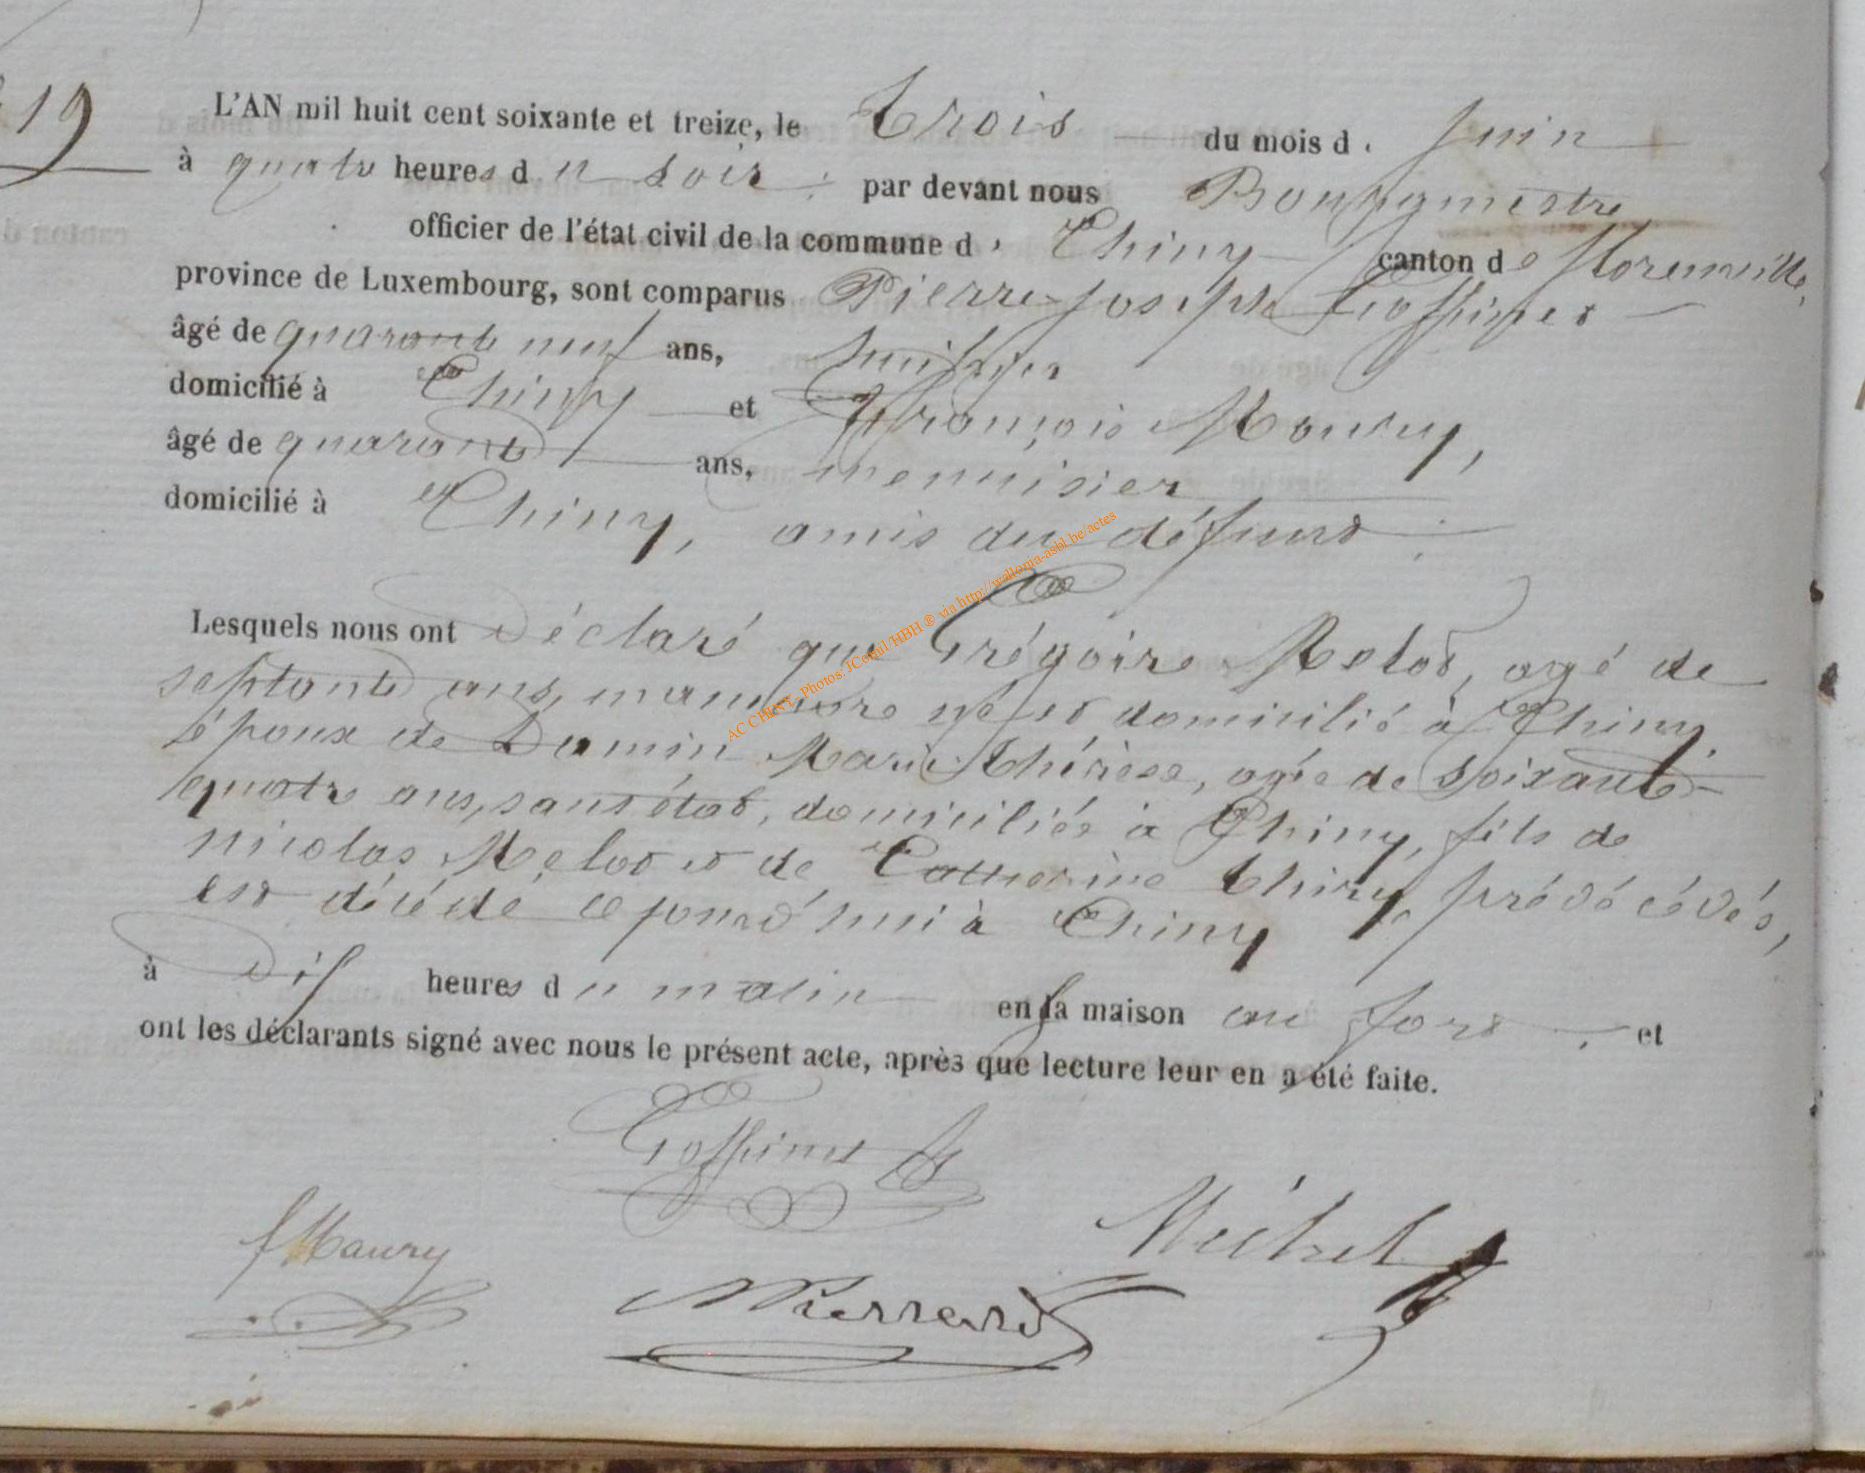 19
L'AN mil huit cent soixante et treize, le trois du mois de Juin
à quatre heures du soir par devant nous Bourgmestre
officier de l'état civil de la commune de Chiny canton de Florenville,
province de Luxembourg, sont comparus Pierre-Joseph Goffinet
âgé de quarante neuf ans, huissier
domicilié à Chiny et François Maury,
âgé de quarante ans, menuisier
domicilié à Chiny, amis du défunt.
Lesquels nous ont déclaré que Grégoire Melot, agé de
septante ans, manœuvre né et domicilié à Chiny,
époux de Damin Marie Thérèse, agée de soixante
quatre ans, sans état, domiciliée à Chiny, fils de
nicolas Melot et de Catherine Thiry, prédécédés,
est décédé ce jourd'hui à Chiny
à dix heures du matin en sa maison au fort, et
ont les déclarants signé avec nous le présent acte, après que lecture leur en a été faite.
Goffinet
f Maury
Michel
Pierrard
AC CHINY - Photos: JCornil/HBH ® via http://wallonia-asbl.be/actes